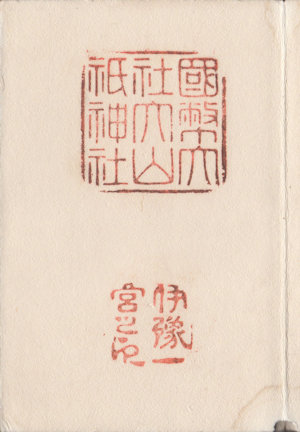 國幣大
社大山
祇神社
伊豫一
宮之印